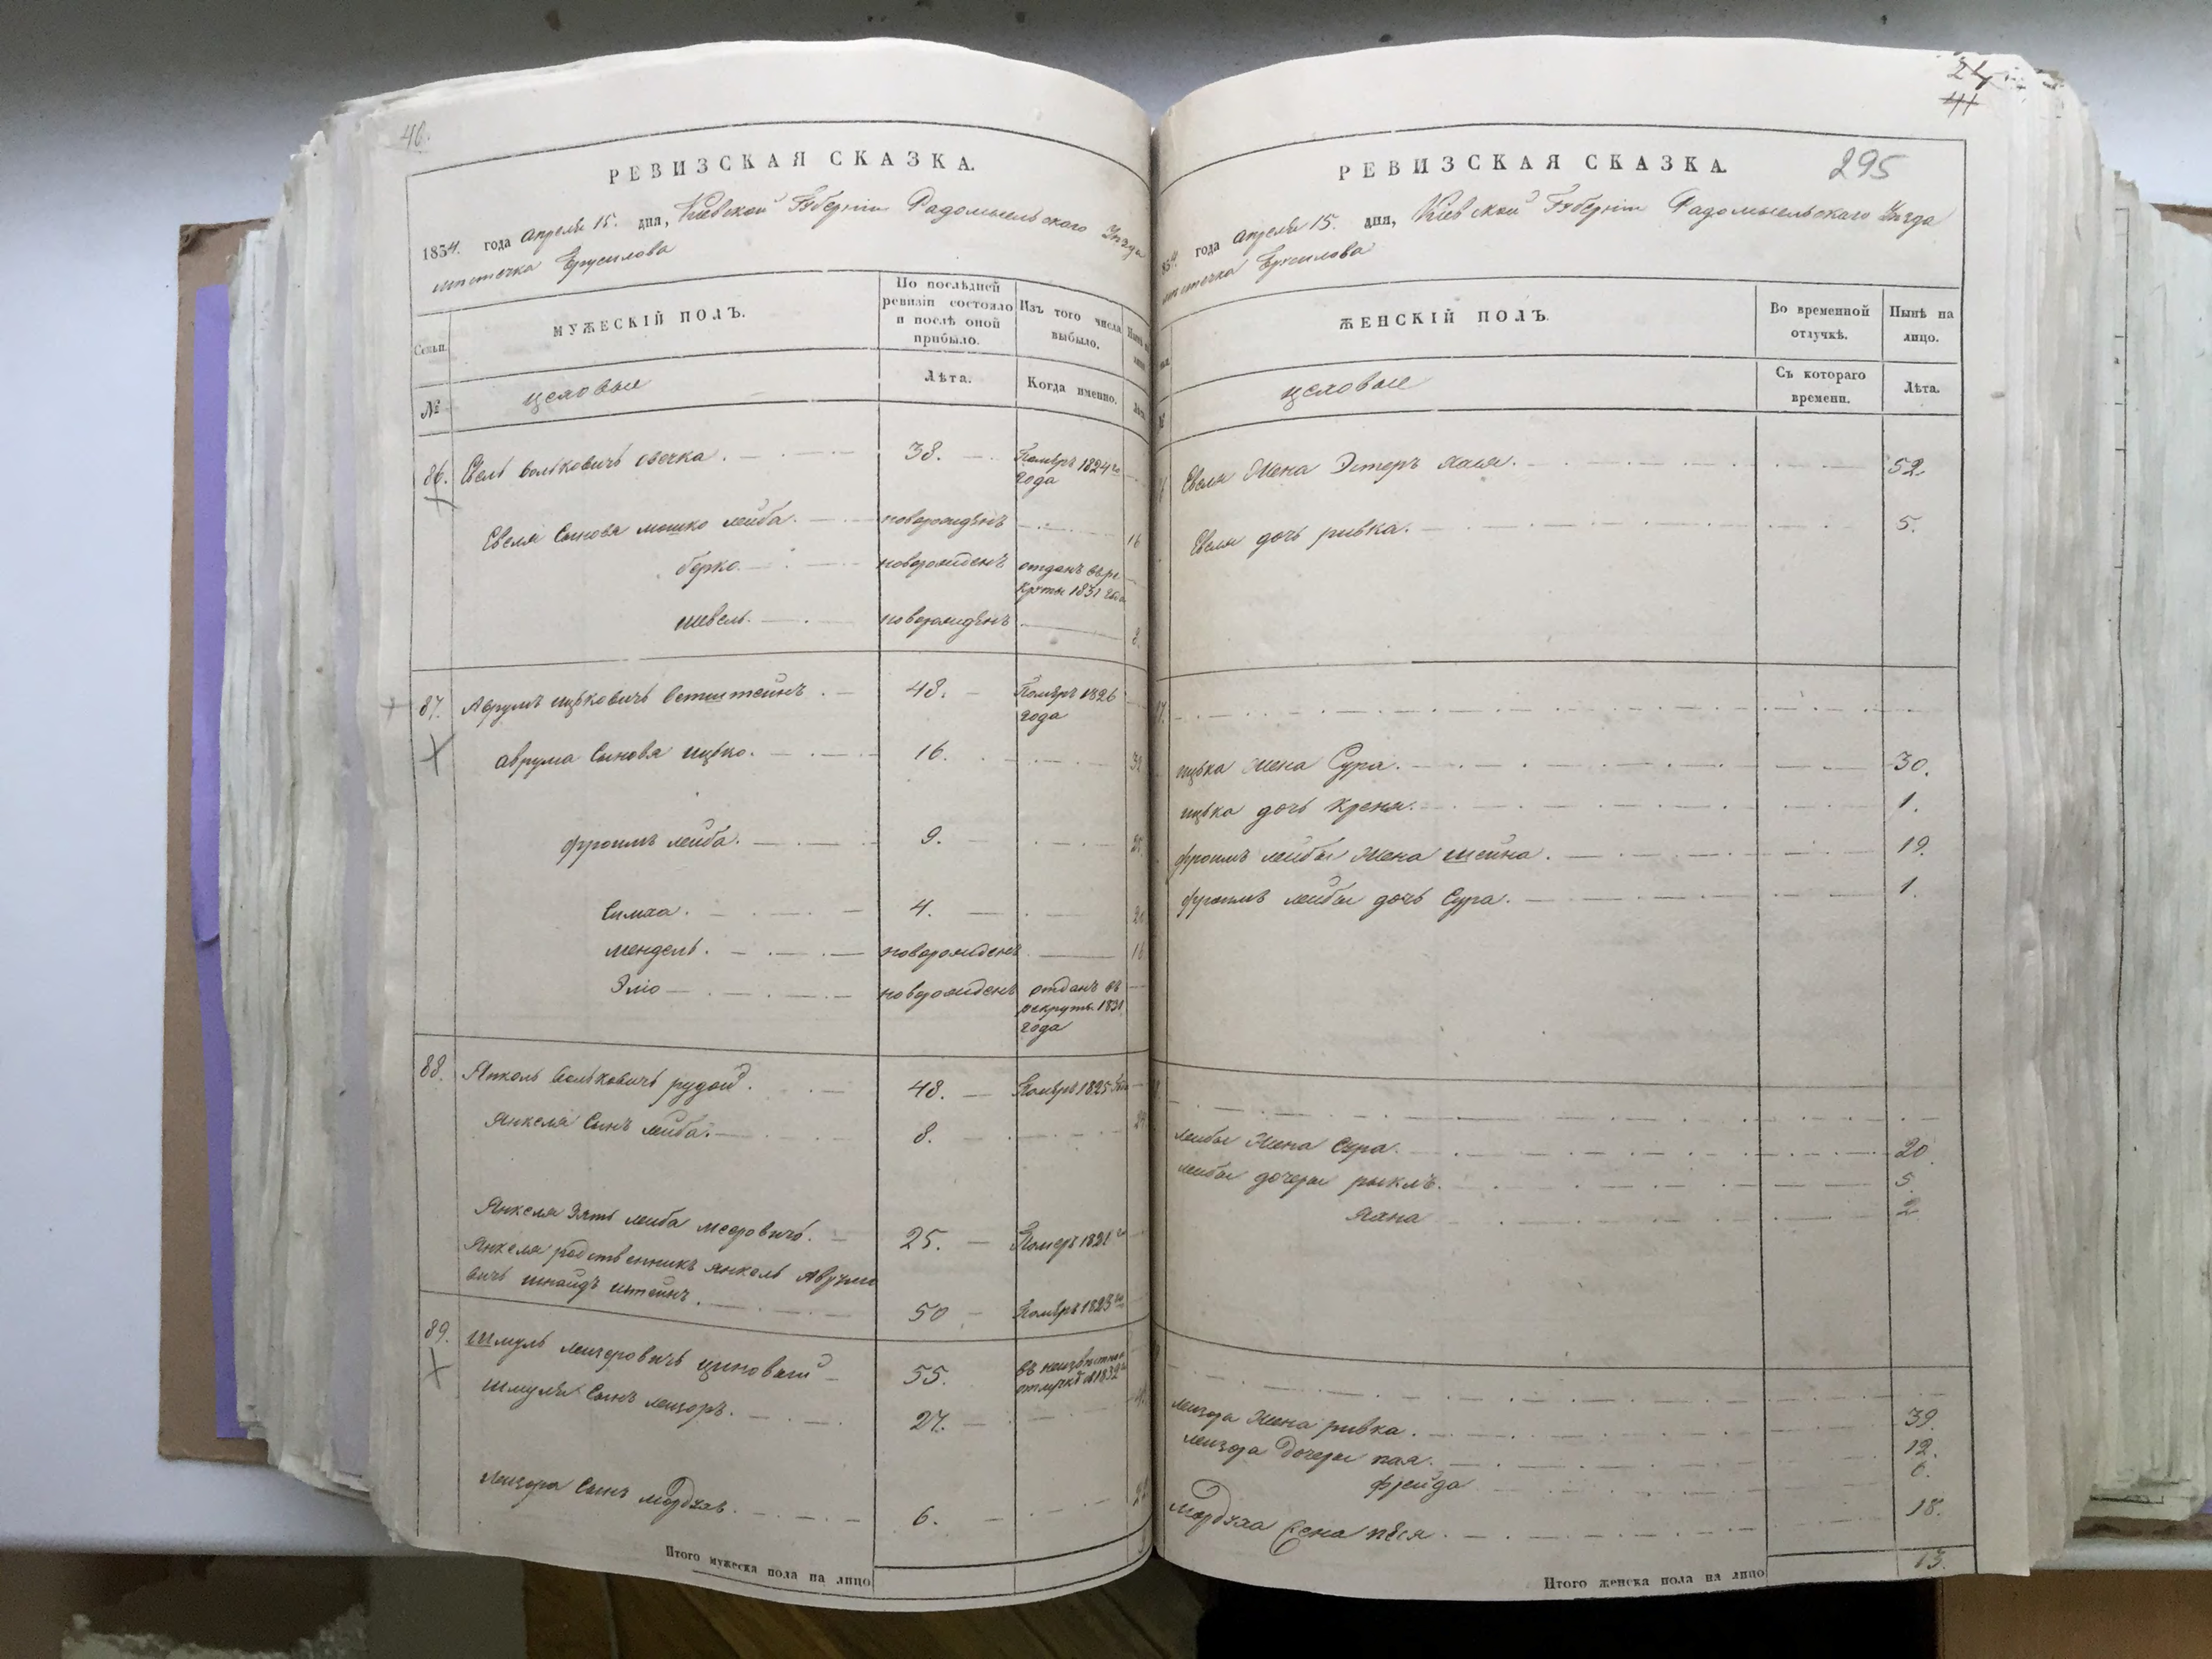 46.
РЕВИЗСКАЯ СКАЗКА.
1854 года апреля 15. дня, Кіевской Губерніи Радомысльскаго Уезда
местечка Брусилова
Семьи.
МУЖЕСКІЙ ПОЛЪ.
По послѣдней ревизіи состояло и послѣ оной прибыло.
Изъ того числа выбыло.
№
цеховые
Лѣта.
Когда именно.
86. Евель Вольковичъ 38. Померъ 1824 го
года
Евеля Сыновья мошко лейба. новорожденъ 16
берко. новорожденъ отданъ въ ре
круты 1851 года
шевель. новорожденъ 8.
87. Аврумъ ицковичъ 48. Померъ 1826
года
Аврума Сыновья ицко. 16.
фроимъ лейба. 9.
Симха. 4. 20
мендель. новорожденъ 16
Эліо новорожденъ отданъ въ
рекруты
года
88. Янкель Вольковичъ рудой. 48. Померъ 1825
Янкеля Сынъ лейба. 8.
Янкеля Зять лейба мееровичъ. 25. Померъ 1821
Янкеля родственникъ янкель Аврумо
вичъ 50 Померъ 1823
89. Шмуль лейзеровичъ 55. въ неизвѣстной
отлучкѣ
шмуля Сынъ лейзоръ. 27.
лейзора Сынъ мордхая. 6.
Итого мужеска пола на лицо
24
41
295
РЕВИЗСКАЯ СКАЗКА.
года апреля 15. дня, Кіевской Губерніи Радомысльскаго Уезда
местечка Брусилова
ЖЕНСКІЙ ПОЛЪ.
Во временной отлучкѣ.
Нынѣ на лицо.
цеховые
Съ котораго времени.
Лѣта.
Евеля Жена Эстеръ хая. 52.
Евеля дочь ривка. 5.
ицка жена Сура. 30.
ицка дочь Креня. 1.
фроимъ лейбы жена шейна. 19.
фроимъ лейбы дочь Сура. 1.
лейбы Жена Сура. 20
лейбы дочери рыкль. 5.
Хана 2
лейзора Жена ривка. 39.
лейзора Дочери хая. 12.
фрейда 6.
Мордхая Жена песя. 18.
Итого женска пола на лицо 13.